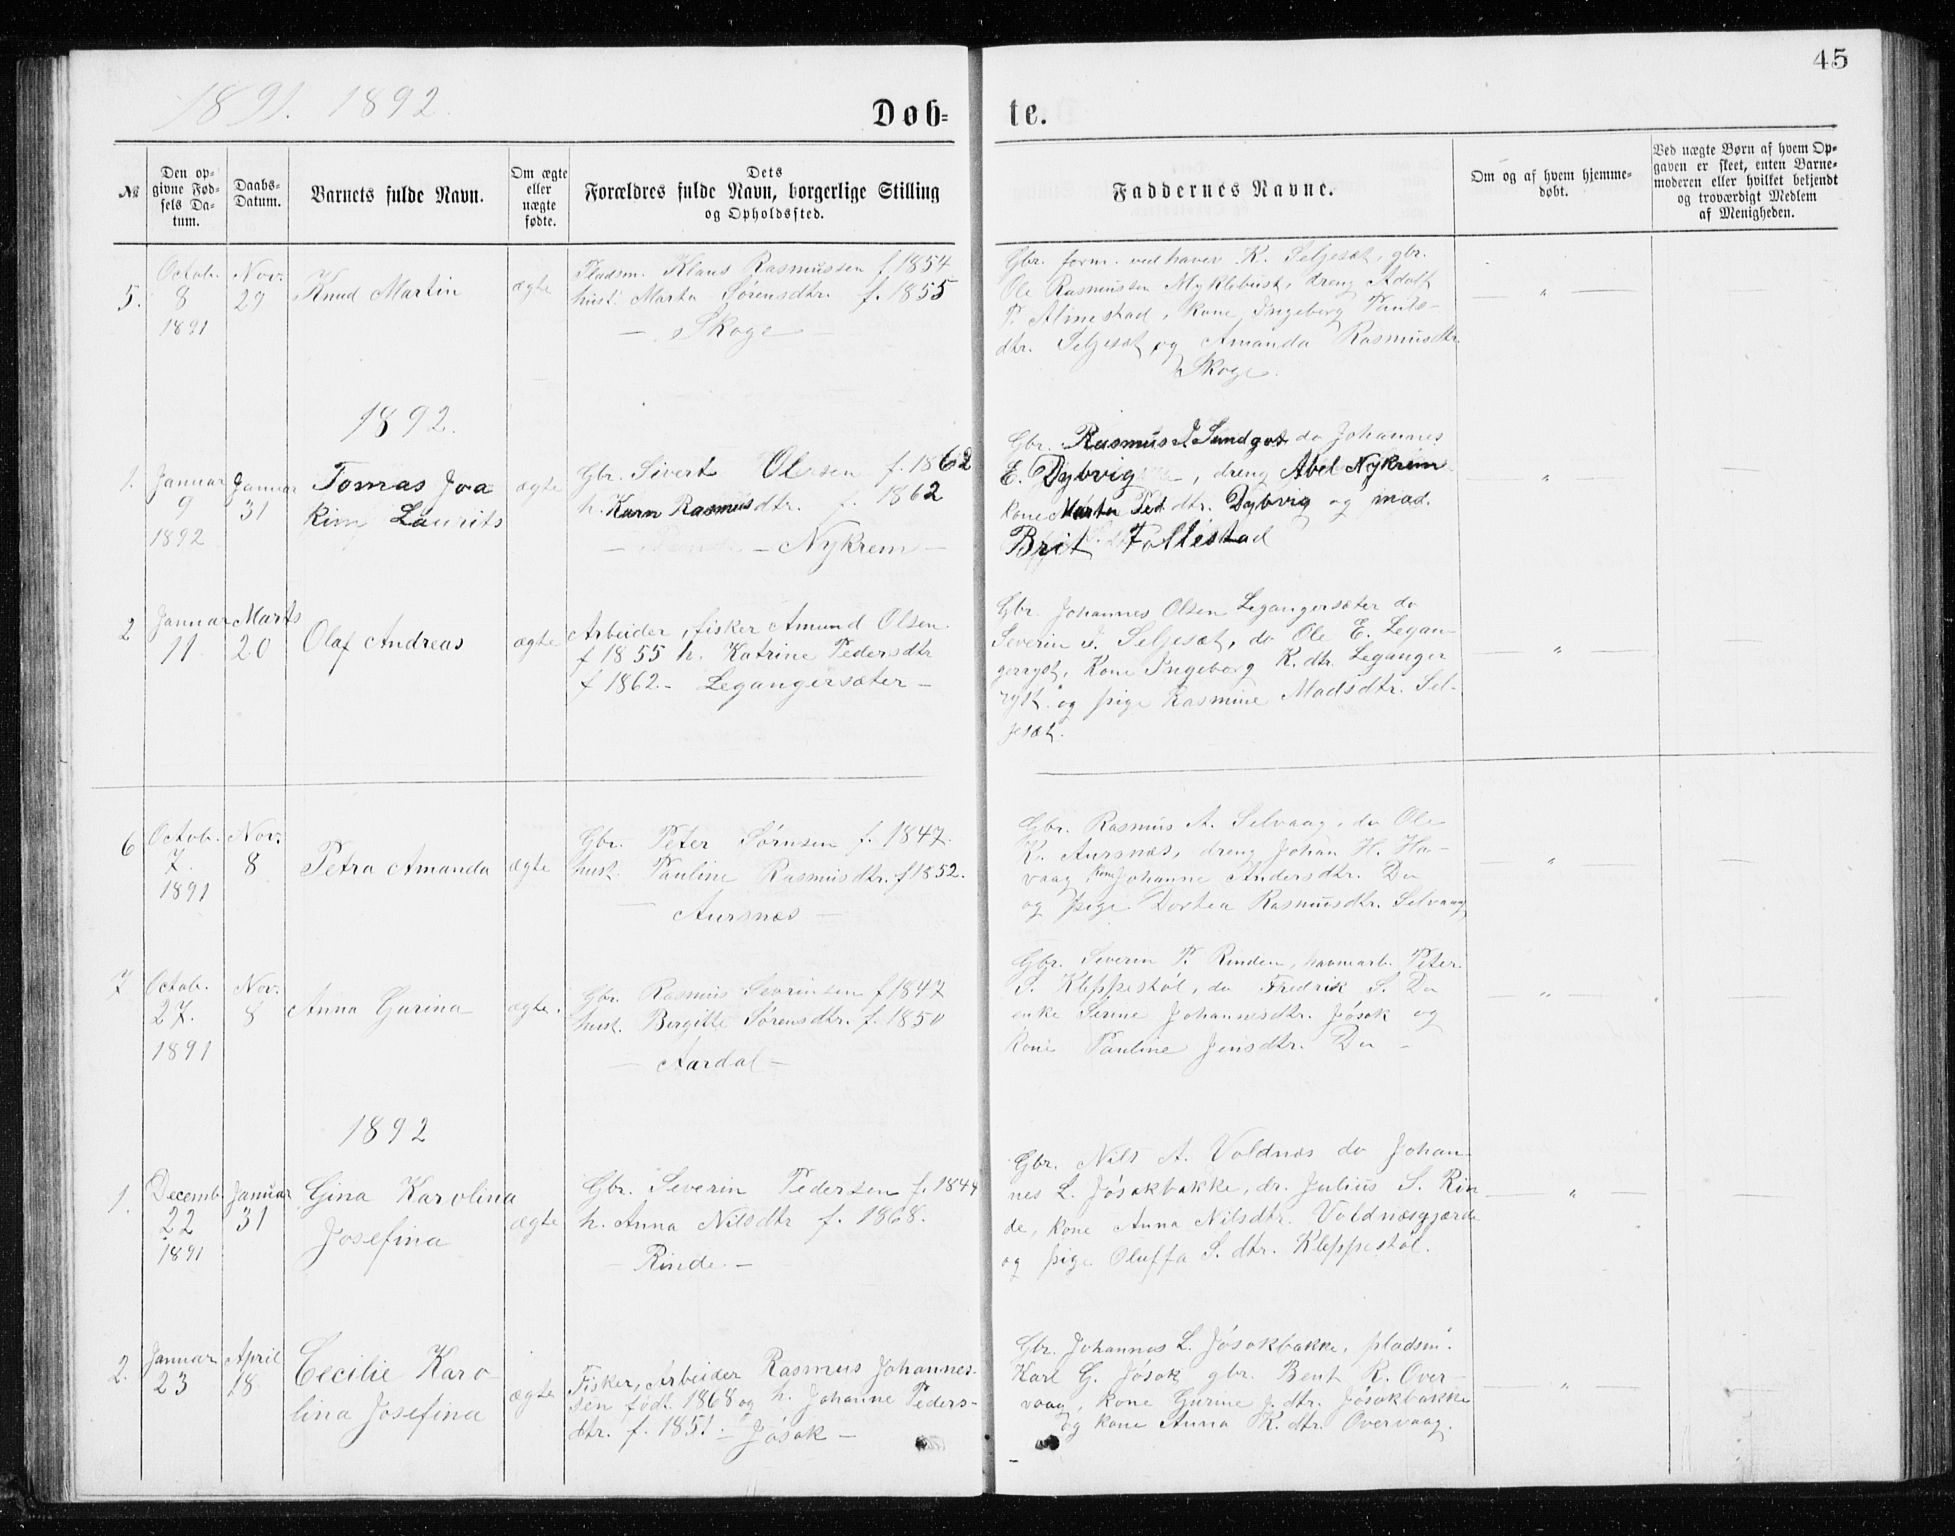 45
1891. 1892.
Døb=
te.
№
Den op-
givne Fød-
sels Da-
tum.
Daabs-
Datum.
Barnets fulde Navn.
Om ægte
eller
uægte
fødte.
Dets
Forældres fulde Navn, borgerlige Stilling
og Opholdssted.
Faddernes Navne.
Om og af hvem hjemme-
døbt.
Ved uægte Børn af hvem Op-
gaven er skeet, enten Barne-
moderen eller hvilket bekjendt
og troværdigt Medlem
af Menigheden.
5.
Octob.
8
1891
Nov:
29
Knud Martin
ægte
Pladsm. Klaus Rasmussen f. 1854
hust. Marta Sørensdtr. f. 1855
— Skoge —
Gbr. form. vedhaver K. Seljesæt, gbr.
Ole Rasmussen Myklebust, dreng Adolf
P. Almestad, kone Ingeborg Pauls-
dtr. Seljesæt og Amanda Rasmusdtr.
Skoge.
— " —
—
1892.
1.
Januar
9
1892
Januar
31
Tomas Joa
kim Laurits
ægte
Gbr. Sivert Olsen f. 1862
h. Karn Rasmusdtr. f. 1862
— Nykrem —
Gbr. Rasmus J Sundgot do Johannes
E. Dybvig —, dreng Abel Nykrem
kone Marta Ped.dtr. Dybvig og mad.
Brit Follestad
— " —
—
2
Januar
11.
Marts
20
Olaf Andreas
ægte
Arbeider, fisker Amund Olsen.
f 1855 h. Katrine Pedersdtr
f 1862.— Legangersæter —
Gbr. Johannes Olsen Legangersæter do
Severin P. Seljesæt, do Ole E. Legan-
gerryst, Kone Ingeborg K.dtr. Leganger
ryst. og pige Rasmine Madsdtr. Sel-
jesæt.
— " —
—
6
Octob.
7.
1891
Nov:
8
Petra Amanda
ægte
Gbr. Peter Sørnsen f. 1847.
hust. Pauline Rasmusdtr. f 1852.
— Aursnæs —
Gbr. Rasmus A. Selvaag, do Ole
K. Aursnæs, dreng Johan H. Ha-
vaag, Kone Johanne Andersdtr. Do
og pige Dortea Rasmusdtr. Selvaag
— " —
—
7
Octob.
27.
1891
Nov:
8
Anna Gurina
ægte.
Gbr. Rasmus Severinsen f 1847
hust. Bergitte Sørensdtr. f. 1850
— Aardal —
Gbr. Severin P. Rinden, havnearb. Peter
S. Kleppestøl, do Fredrik S. Do
enke Senne Johannesdtr. Jøsok og
kone Pauline Jensdtr. Do —
— " —
—
1892
1.
Decemb.
22
1891
Januar
31
Gina Karolina
Josefina
ægte
Gbr. Severin Pedersen f. 1844
h. Anna Nilsdtr f. 1868.
— Rinde. —
Gbr. Nils A. Voldnæs do Johan-
nes L. Jøsokbakke, dr. Julius S. Rin
de, kone Anna Nilsdtr. Voldnæsgjærde
og pige Oluffa S. dtr. Kleppestøl.
— " —
—
2.
Januar
23
April
18
Cecilie Karo
lina Josefina
ægte
Fisker, Arbeider Rasmus Johannes-
sen født 1868 og h. Johanne Peders-
dtr. f. 1851. — Jøsok —
Gbr. Johannes L. Jøsokbakke, pladsm.
Karl G. Jøsok gbr. Bent R. Over-
vaag, kone Gurine J. dtr. Jøsokbakke
og kone Anna K. dtr. Overvaag.
— " —
—